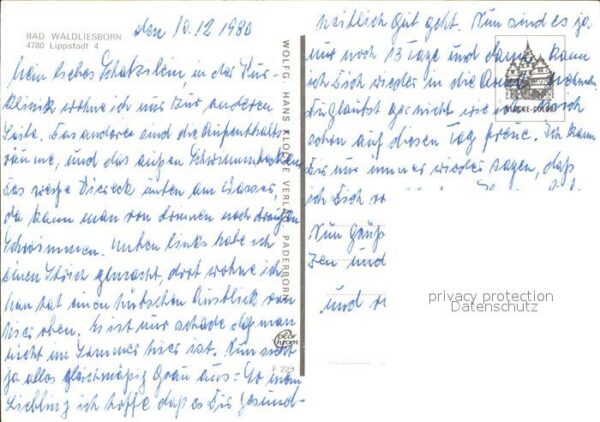 BAD WALDLIESBORN
4780 Lippstadt 4
den 10.12 1980
Mein liebes Schatzilein, in der Kur-
klinik wohne ich nur zur anderen
Seite. Das andere sind die Aufenthalts
räume, und das außen Schwimmbecken
das weiße Viereck unten am Wasser,
da kann man von drinnen nach draußen
Schwimmen. Unten links habe ich
einen Strich gemacht, dort wohne ich
man hat einen hübschen Ausblick von
hier oben. Es ist nur schade daß man
nicht im Sommer hier ist. Nun sieht
ja alles gleichmäßig Grau aus. So mein
Liebling ich hoffe daß es Dir gesund-
heitlich Gut geht. Nun sind es ja
nur noch 13 Tage und dann kann
ich Dich wieder in die Arme nehmen
Du glaubst gar nicht wie ich mich
schon auf diesen Tag freue. Ich kann
Dir nur immer wieder sagen, daß
ich Dich
Nun Grüße
zen und
und
WOLFG. HANS KLOCKE VERLAG, PADERBORN
F 229
privacy protection
Datenschutz